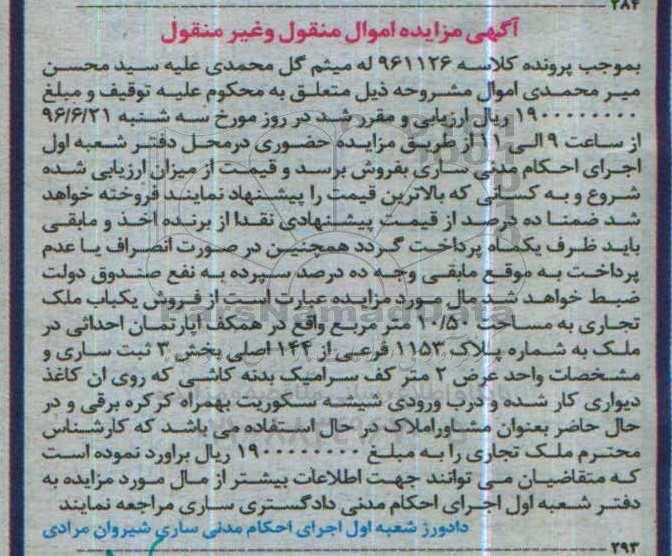 ۲۸۴
آگهی مزایده اموال منقول وغیر منقول
بموجب پرونده کلاسه ۹۶۱۱۲۶ له میثم گل محمدی علیه سید محسن
میر محمدی اموال مشروحه ذیل متعلق به محکوم علیه توقیف و مبلغ
۱۹۰۰۰۰۰۰۰۰ ریال ارزیابی و مقرر شد در روز مورخ سه شنبه ۹۶/۶/۲۱
از ساعت ۹ الی ۱۱ از طریق مزایده حضوری درمحل دفتر شعبه اول
اجرای احکام مدنی ساری بفروش برسد و قیمت از میزان ارزیابی شده
شروع و به کسانی که بالاترین قیمت را پیشنهاد نمایند فروخته خواهد
شد ضمنا ده درصد از قیمت پیشنهادی نقدا از برنده اخذ و مابقی
باید ظرف یکماه پرداخت گردد همچنین در صورت انصراف یا عدم
پرداخت به موقع مابقی وجه ده درصد سپرده به نفع صندوق دولت
ضبط خواهد شد مال مورد مزایده عبارت است از فروش یکباب ملک
ParsNamadData
تجاری به مساحت ۱۰/۵۰ متر مربع واقع در همکف اپارتمان احداثی در
ملک به شماره پلاک ۱۱۵۳ فرعی از ۱۴۴ اصلی بخش ۳ ثبت ساری و
مشخصات واحد عرض ۲ متر کف سرامیک بدنه کاشی که روی ان کاغذ
دیواری کار شده و درب ورودی شیشه سکوریت بهمراه کرکره برقی و در
حال حاضر بعنوان مشاوراملاک در حال استفاده می باشد که کارشناس
محترم ملک تجاری را به مبلغ ۱۹۰۰۰۰۰۰۰۰ ریال براورد نموده است
که متقاضیان می توانند جهت اطلاعات بیشتر از مال مورد مزایده به
دفتر شعبه اول اجرای احکام مدنی دادگستری ساری مراجعه نمایند
دادورز شعبه اول اجرای احکام مدنی ساری شیروان مرادی
۲۹۳